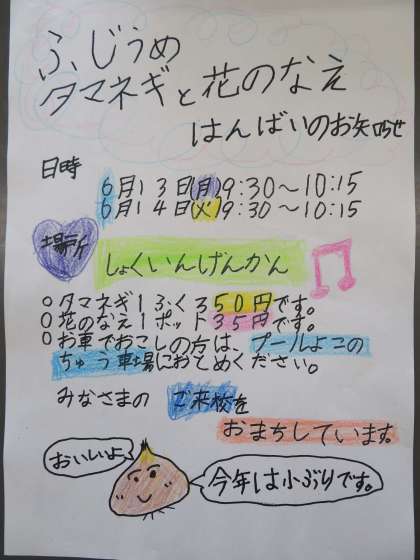 ふじうめ
タマネギと花のなえ
はんばいのお知らせ
日時
6月13日(月)9:30～10:15
6月14日(火)9:30～10:15
場所
しょくいんげんかん
○タマネギ1ふくろ50円です。
○花のなえ1ポット35円です。
○お車でおこしの方は、プールよこの
ちゅう車場におとめください。
みなさまの ご来校を
おまちしています。
おいしいよ
今年は小ぶりです。